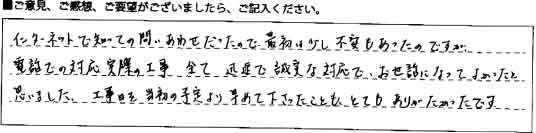 ■ご意見、ご感想、ご要望がございましたら、ご記入ください。
インターネットで知っての問い合わせだったので最初は少し不安もあったのですが、
電話での対応、実際の工事 全て 迅速で誠実な対応で、お世話になってよかったと
思いました。工事日を当初の予定より早めて下さったことも、とてもありがたかったです